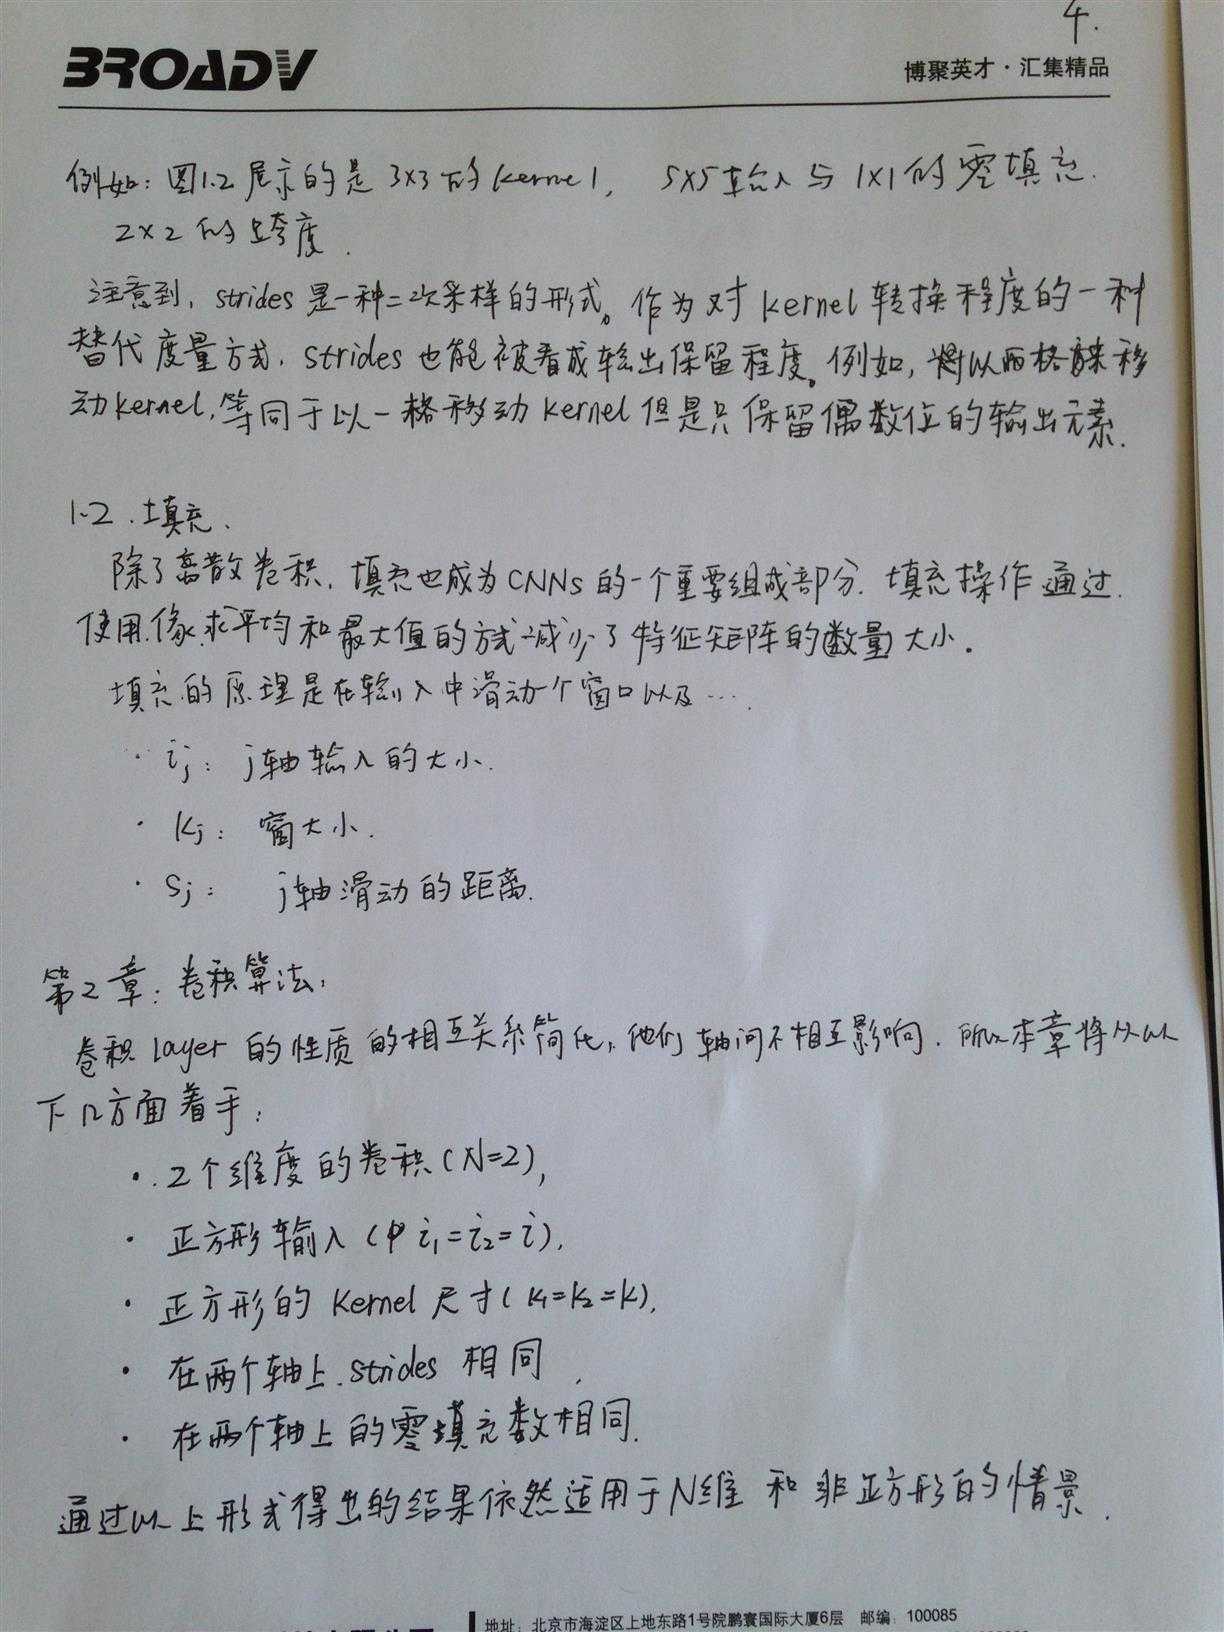 4.
BROADV
博聚英才·汇集精品
例如: 图1.2展示的是 3x3 的 kernel, 5x5输入与 1x1的零填充.
2x2 的跨度.
注意到, strides 是一种二次采样的形式。作为对 kernel 转换程度的一种
替代度量方式, strides也能被看成输出保留程度。例如, 以两格来移
动kernel, 等同于以一格移动kernel但是只保留偶数位的输出元素.
1.2. 填充.
除了离散卷积, 填充也成为CNNs的一个重要组成部分. 填充操作通过
使用像求平均和最大值的方式减少了特征矩阵的数量大小.
填充的原理是在输入中滑动一个窗口以及…
· ij: j轴输入的大小.
· kj: 窗大小.
· sj: j轴滑动的距离.
第2章: 卷积算法:
卷积 layer 的性质的相互关系简化, 他们轴间不相互影响. 所以本章将从以
下几方面着手:
· 2个维度的卷积(N=2),
· 正方形输入(中 i1=i2=i),
· 正方形的 kernel 尺寸(k1=k2=k),
· 在两个轴上 strides 相同,
· 在两个轴上的零填充数相同.
通过以上形式得出的结果依然适用于N维 和 非正方形的情景.
地址: 北京市海淀区上地东路1号院鹏寰国际大厦6层 邮编: 100085